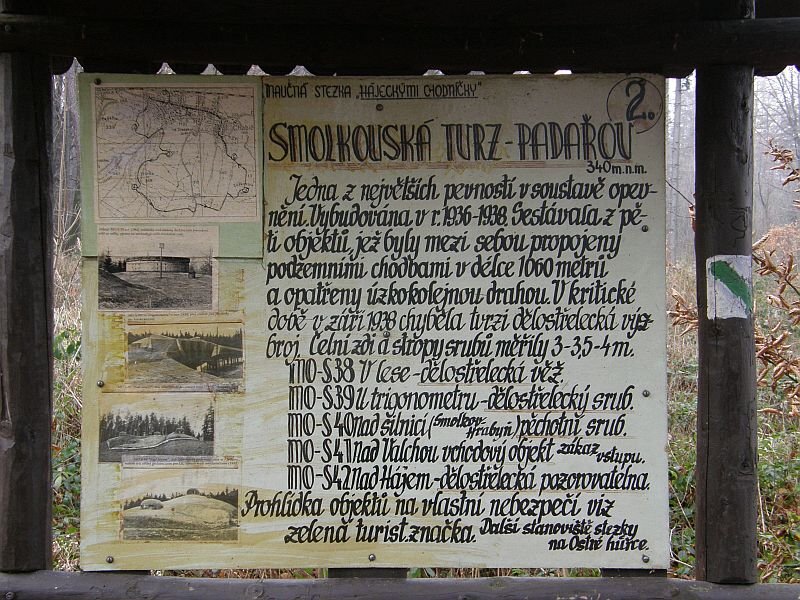 NAUČNÁ STEZKA „HÁJECKÝMI CHODNÍČKY“
2.
SMOLKOVSKÁ TVRZ - PADAŘOV
340 m.n.m.
Jedna z největších pevností v soustavě opev-
nění. Vybudována v r. 1936-1938. Sestávala z pě-
ti objektů, jež byly mezi sebou propojeny
podzemními chodbami v délce 1060 metrů
a opatřeny úzkokolejnou drahou. V kritické
době v září 1938 chyběla tvrzi dělostřelecká výz-
broj. Čelní zdi a stropy srubů měřily 3-3,5-4 m.
MO-S38 V lese-dělostřelecká věž.
MO-S39 U trigonometru-dělostřelecký srub.
MO-S40 Nad silnicí (Smolkov-Hrabyň) pěchotní srub.
MO-S41 Nad Valchou vchodový objekt zákaz vstupu.
MO-S42 Nad Hájem-dělostřelecká pozorovatelna.
Prohlídka objektů na vlastní nebezpečí viz
zelená turist. značka. Další stanoviště stezky
na Ostré hůrce.